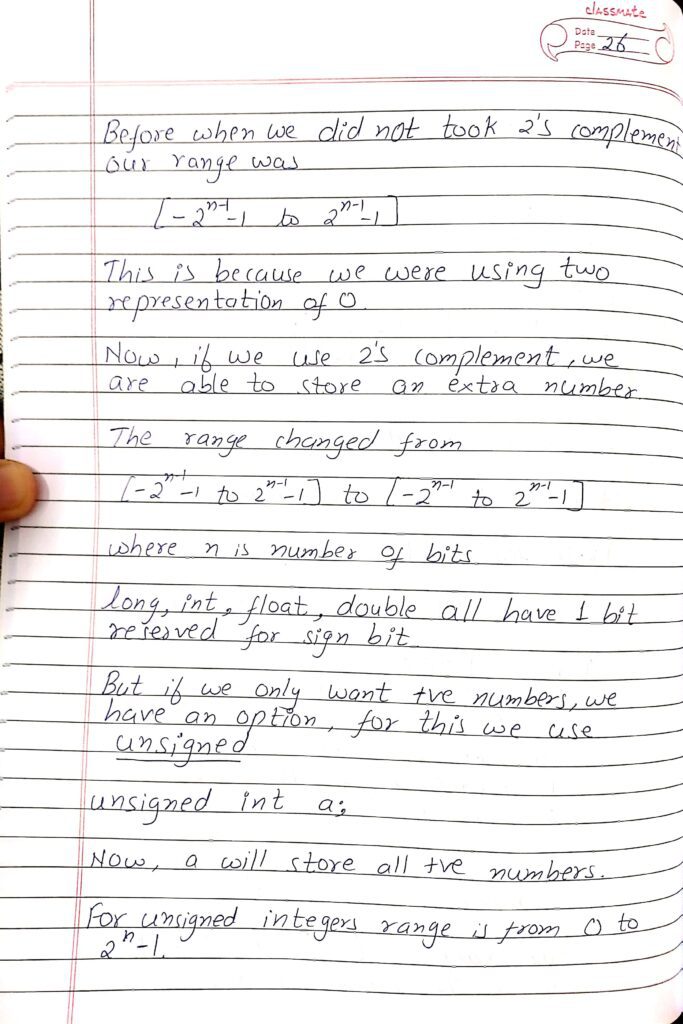 classmate
Date
Page 26
Before when we did not took 2's complement
our range was
[-2ⁿ⁻¹-1 to 2ⁿ⁻¹-1]
This is because we were using two
representation of 0.
Now, if we use 2's complement, we
are able to store an extra number
The range changed from
[-2ⁿ⁻¹-1 to 2ⁿ⁻¹-1] to [-2ⁿ⁻¹ to 2ⁿ⁻¹-1]
where n is number of bits
long, int, float, double all have 1 bit
reserved for sign bit
But if we only want +ve numbers, we
have an option, for this we use
unsigned
unsigned int a;
Now, a will store all +ve numbers.
For unsigned integers range is from 0 to
2ⁿ-1.